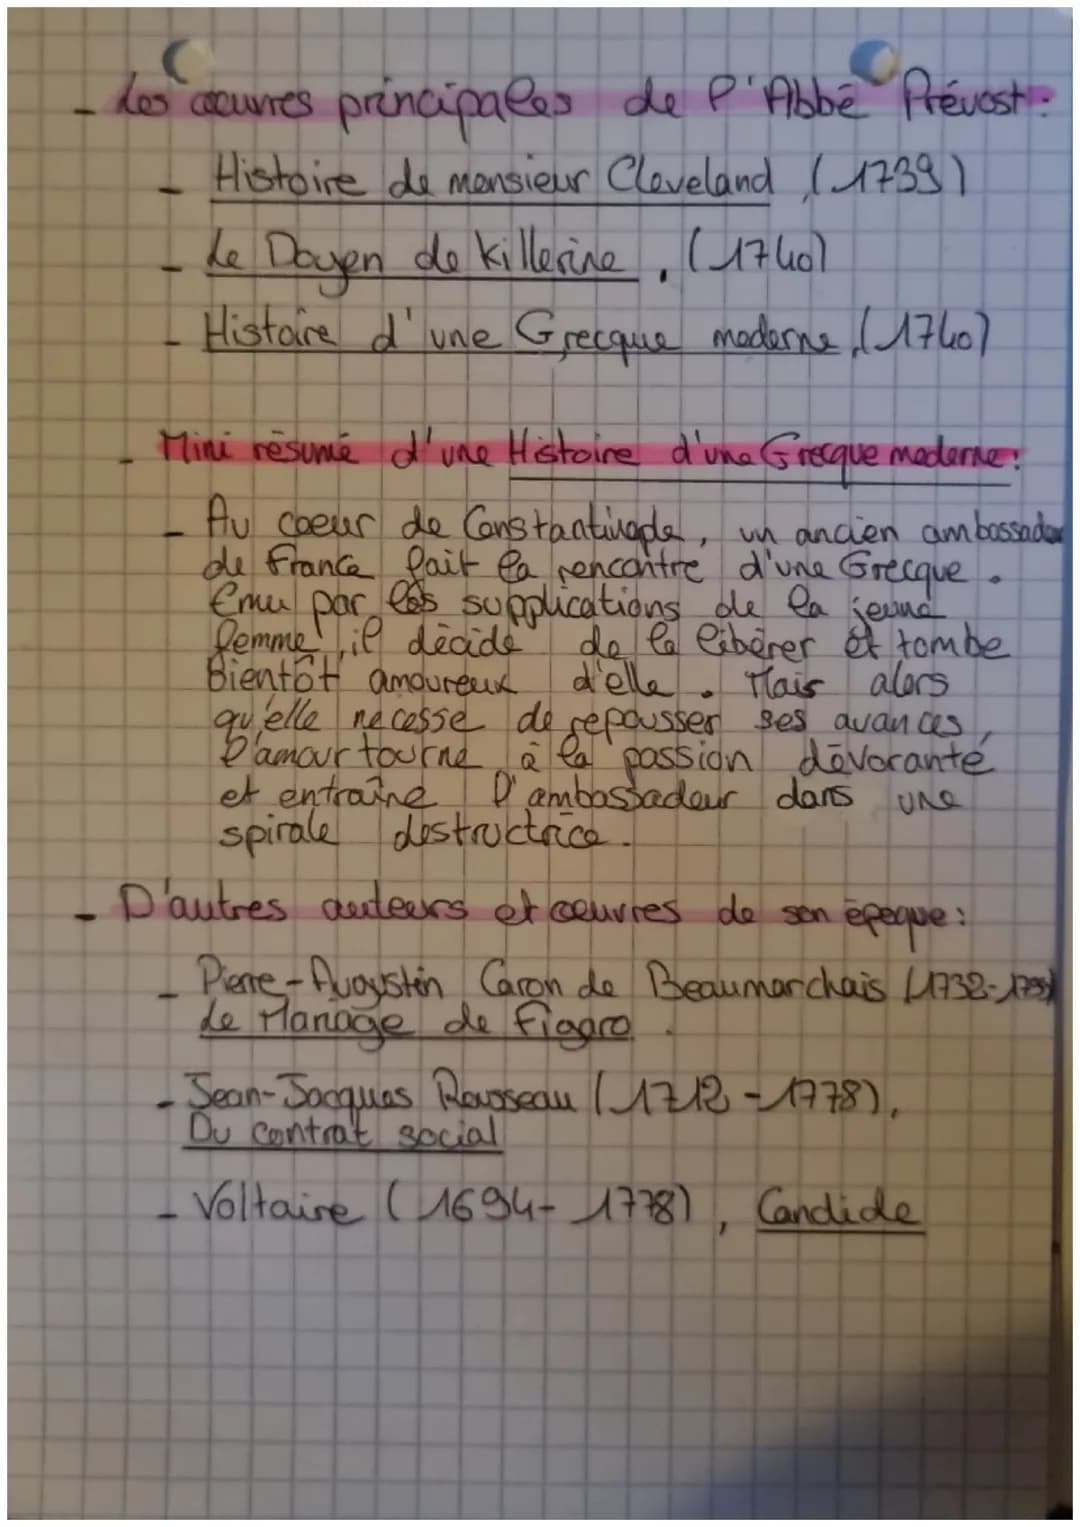 - Les œuvres principales de l'Abbé Prévost :
- Histoire de monsieur Cleveland, (1739)
- Le Doyen de Killerine, (1740)
- Histoire d'une Grecque moderne, (1740)
- Mini résumé d'une Histoire d'une Grecque moderne :
- Au coeur de Constantinople, un ancien ambassadeur
de France fait la rencontre d'une Grecque.
Emu par les supplications de la jeune
femme, il décide de la libérer et tombe
Bientôt amoureux d'elle. Mais alors
qu'elle ne cesse de repousser ses avances,
l'amour tourne à la passion dévorante
et entraîne l'ambassadeur dans une
spirale destructrice.
- D'autres auteurs et œuvres de son époque :
- Pierre-Augustin Caron de Beaumarchais (1732-1799)
Le Mariage de Figaro.
- Jean-Jacques Rousseau (1712-1778),
Du contrat social
- Voltaire (1694-1778), Candide